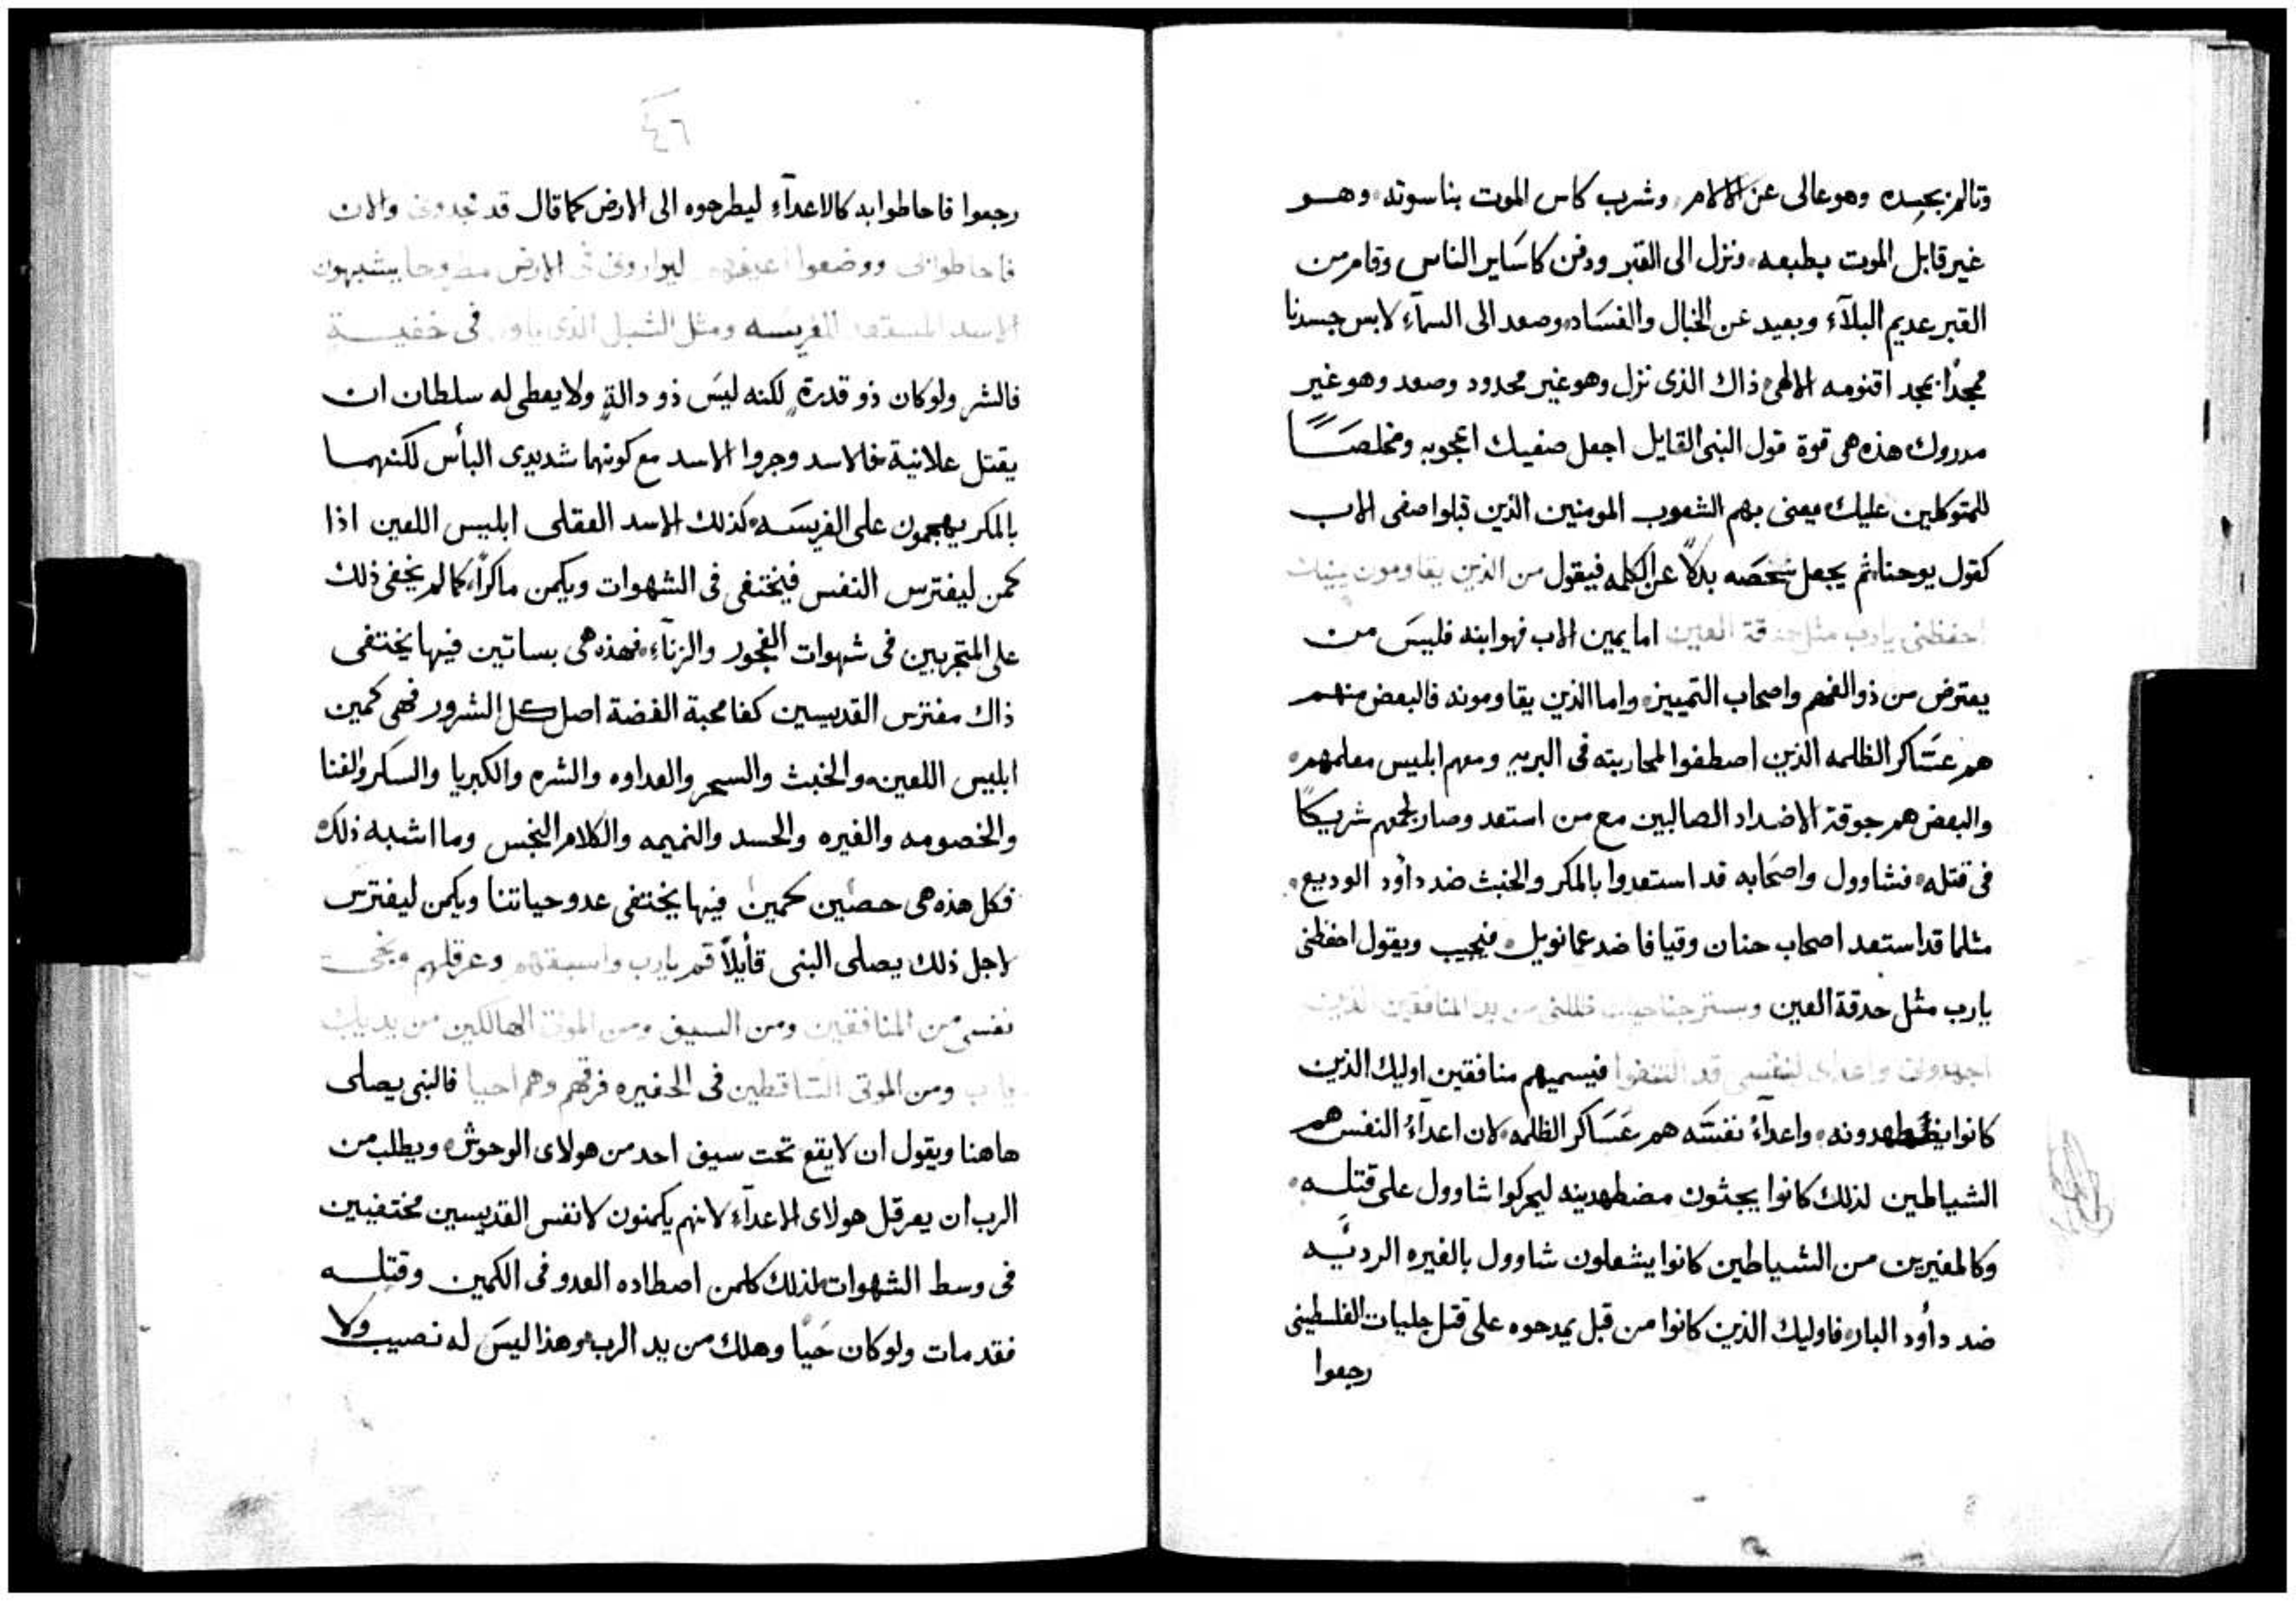 وتالم بجسده وهو عالى عن الالام، وشرب كاس الموت بناسوته، وهو
غير قابل الموت بطبعه، ونزل الى القبر ودفن كاساير الناس وقام من
القبر عديم البلآء وبعيد عن الخبال والفساد، وصعد الى السمآء لابس جسدنا
ممجدًا بمجد اقنومه الالهى، ذاك الذى نزل وهو غير محدود وصعد وهو غير
مدروك هذه هى قوة قول النبى القايل اجعل صفيك اعجوبه ومخلصًا
للمتوكلين عليك، يعنى بهم الشعوب المومنين الذين قبلوا صفى الاب
كقول يوحنا، ثم يجعل شخصه بدلاً عن الكلمه فيقول من الذين يقاومون يمينك
احفظنى يارب مثل حدقة العين اما يمين الاب فهو ابنه فليس من
يعترض من ذو الفهم واصحاب التمييز، واما الذين يقاومونه فالبعض منهم
هم عساكر الظلمه الذين اصطفوا لمحاربته فى البريه ومعهم ابليس معلمهم،
والبعض هم جوقة الاضداد الصالبين مع من استعد وصار لجمعهم شريكًا
فى قتله، فشاوول واصحابه قد استعدوا بالمكر والخبث ضد داؤد الوديع،
مثلما قد استعد اصحاب حنان وقيافا ضد عمانويل، فيجيب ويقول احفظنى
يارب مثل حدقة العين وبستر جناحيك ظللنى من يد المنافقين الذين
اجهدونى واعداى لنفسى قد اكتنفوا فيسميهم منافقين اوليك الذين
كانوا يضطهدونه، واعدآء نفسه هم عساكر الظلمه، لان اعدآء النفس هم
الشياطين لذلك كانوا يجثون مضطهدينه ليحركوا شاوول على قتله،
وكالمغيرين من الشياطين كانوا يشعلون شاوول بالغيره الرديَّه
ضد داؤد البار، فاوليك الذين كانوا من قبل يمدحوه على قتل جليات الفلسطينى
رجعوا
٤٦
رجعوا فاحاطوا به كالاعدآء ليطرحوه الى الارض كما قال قد تجدونى والان
فاحاطوا بى ووضعوا اعينهم ليوارونى فى الارض مطروحا يشبهون
الاسد المستعد للفريسه ومثل الشبل الذى ياوى فى خفية
فالشر ولو كان ذو قدرة، لكنه ليس ذو دالةٍ ولا يعطى له سلطان ان
يقتل علانية، فالاسد وجروا الاسد مع كونهما شديدى البأس لكنهما
بالمكر يهجمون على الفريسه، كذلك الاسد العقلى ابليس اللعين اذا
كمن ليفترس النفس فيختفى فى الشهوات ويكمن ماكرًا، كما لم يخفى ذلك
على المتجربين فى شهوات الفجور والزنآء، فهذه هى بساتين فيها يختفى
ذاك مفترس القديسين كفا محبة الفضة اصل كل الشرور فهى كمين
ابليس اللعين، والخبث والسحر والعداوه والشره والكبريا والسكر والغنا
والخصومه والغيره والحسد والنميمه والكلام النجس وما اشبه ذلك،
فكل هذه هى حصين كمين فيها يختفى عدو حياتنا ويكمن ليفترس
لاجل ذلك يصلى النبى قآيلاً قم يارب واسبقهم وعرقلهم ونجى
نفسى من المنافقين ومن السيف ومن الموتى الهالكين من يديك
يارب ومن الموتى الساقطين فى الحفيره فرقهم وهم احيا فالنبى يصلى
هاهنا ويقول ان لا يقع تحت سيف احد من هولاى الوحوش، ويطلب من
الرب ان يعرقل هولاى الاعدآء لانهم يكمنون لانفس القديسين مختفيين
فى وسط الشهوات، لذلك كلمن اصطاده العدو فى الكمين وقتله
فقد مات ولو كان حيًا وهلك من يد الرب، وهذا ليس له نصيب ولا